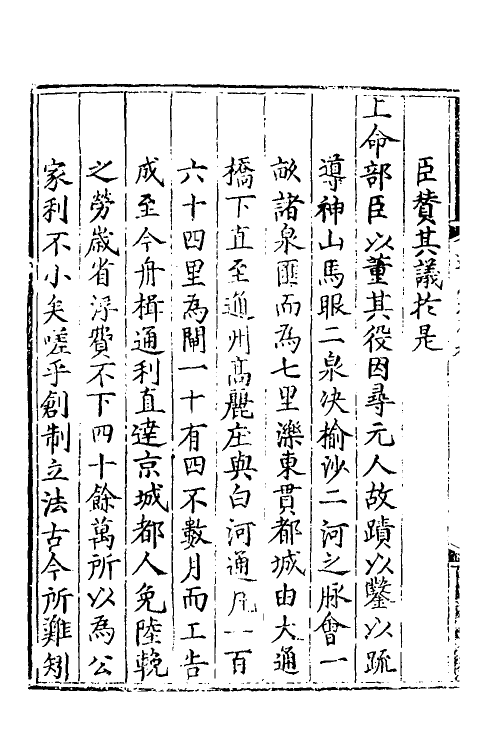 臣贊其議於是
上命部臣以董其役因尋元人故蹟以鑿以疏
導神山馬眼二泉決榆沙二河之脉會一
畝諸泉匯而為七里濼東貫都城由大通
橋下直至通州高麗庄與白河通凡一百
六十四里為閘一十有四不數月而工告
成至今舟楫通利直達京城都人免陸輓
之勞歲省浮費不下四十餘萬所以為公
家利不小矣嗟乎創制立法古今所難矧